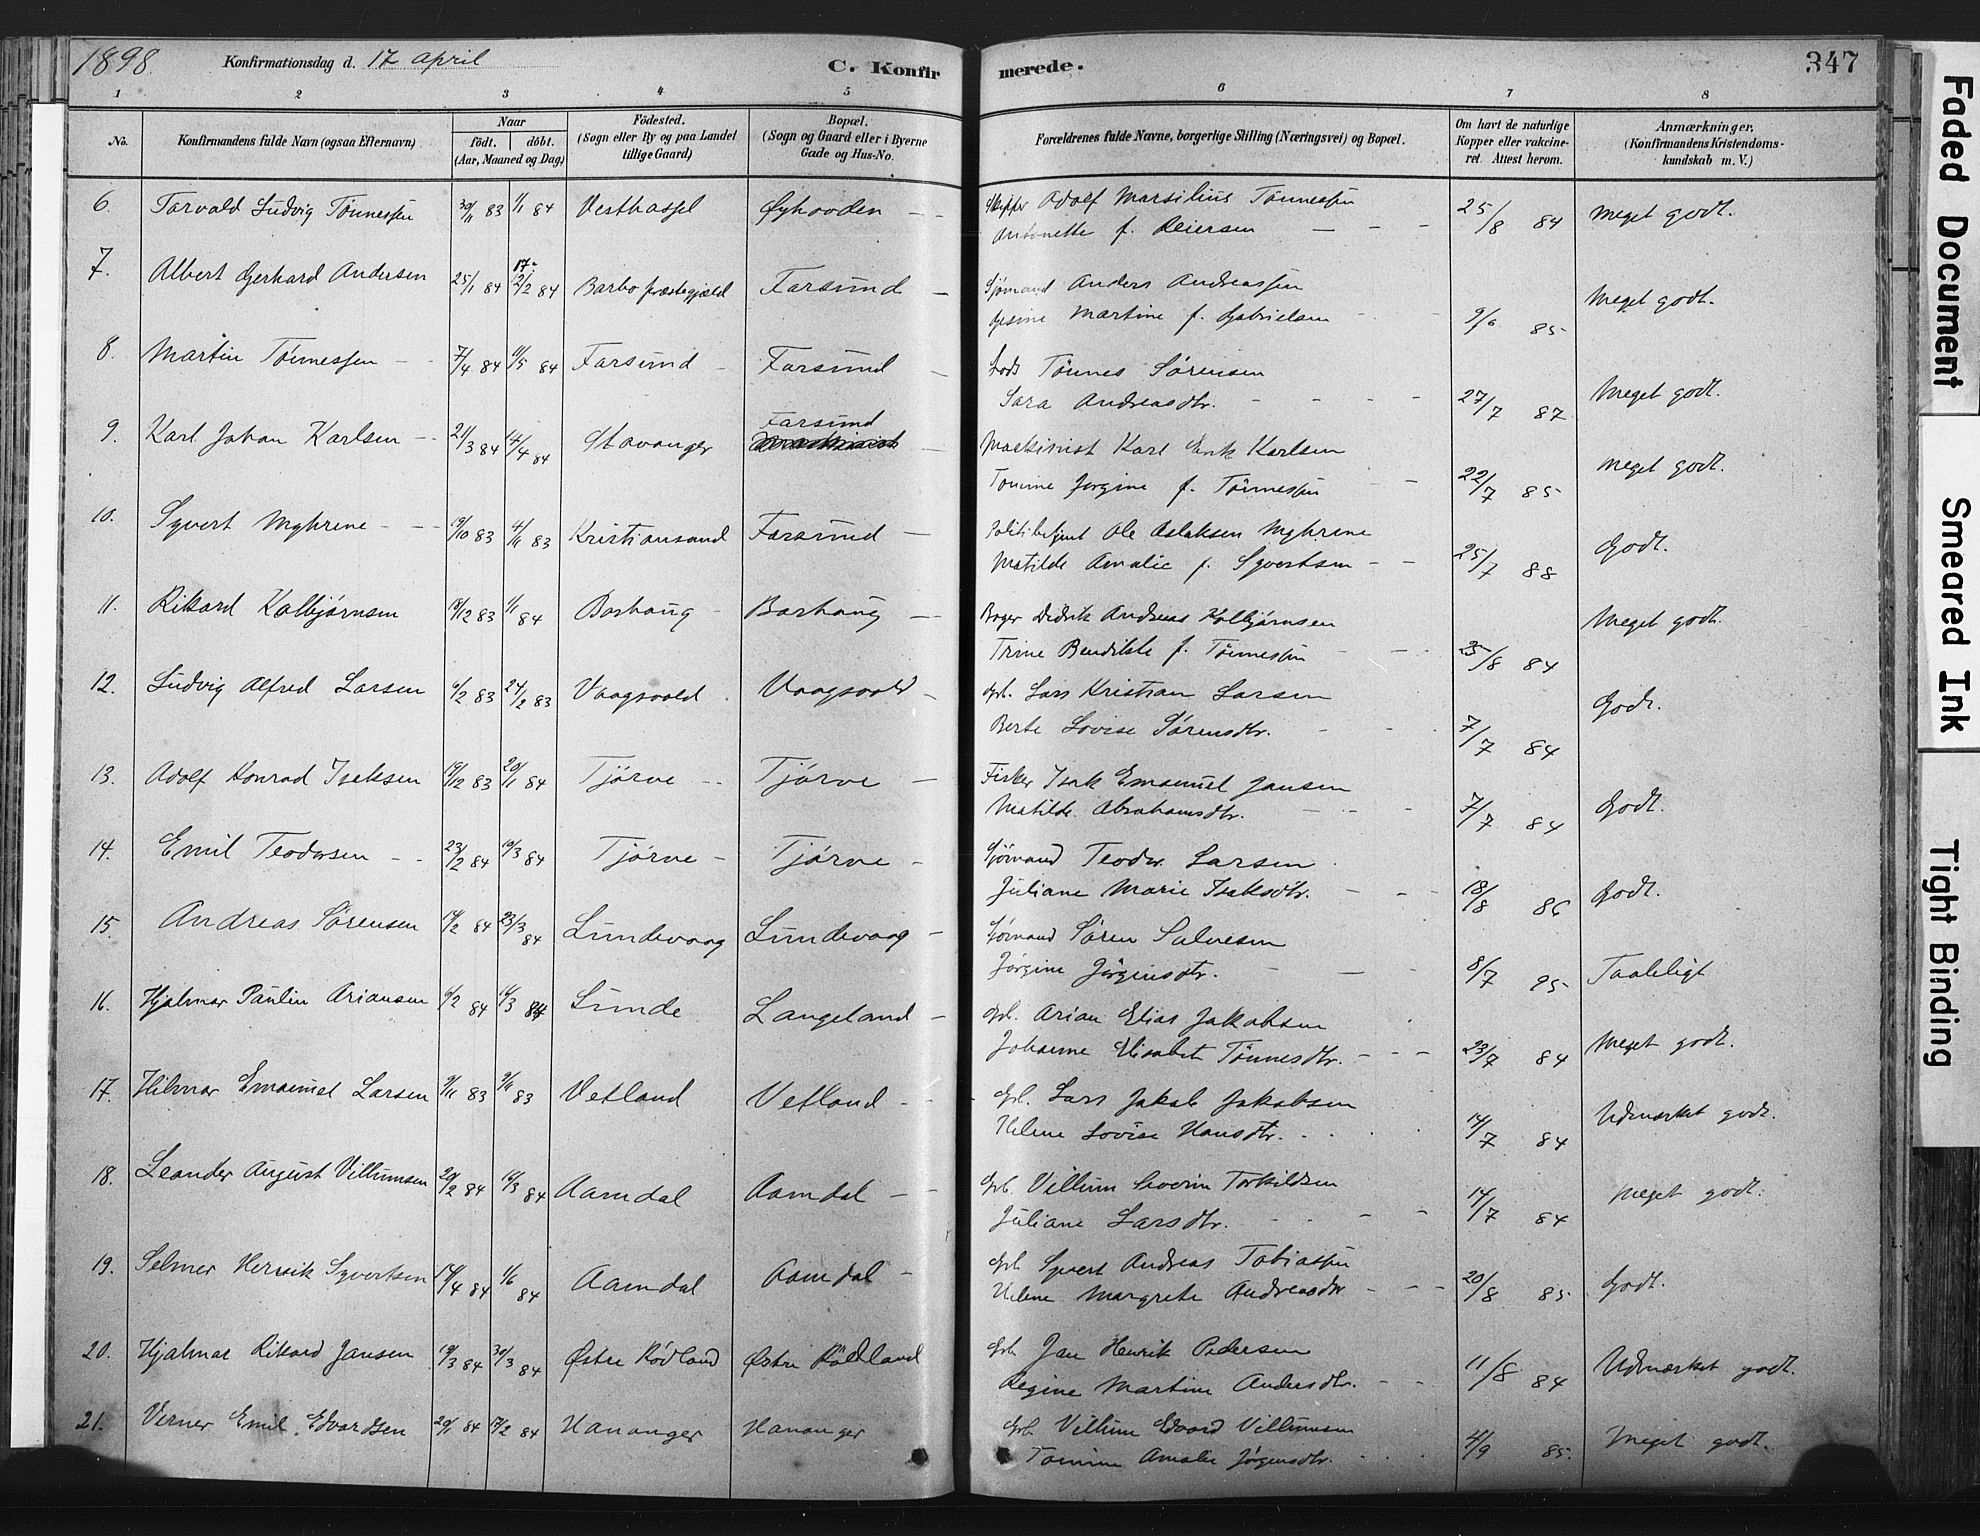 1898. Konfirmationsdag d. 17 April C. Konfir merede. 347
1 2 3 4 5 6 7 8
No. Konfirmandens fulde Navn (ogsaa Efternavn) Naar født. døbt. (Aar, Maaned og Dag) Fødested. (Sogn eller By og paa Landet tillige Gaard) Bopæl. (Sogn og Gaard eller i Byerne Gade og Hus-No. Forældrenes fulde Navne, borgerlige Stilling (Næringsvei) og Bopæl. Om havt de naturlige Kopper eller vakcineret. Attest herom. Anmærkninger. (Konfirmandens Kristendomskundskab m. V.)
6. Tarvald Ludvig Tønnessen 30/11 83 1/1 84 Vesthassel Øyhovden Skipper Adolf Marsilius Tønnessen
Antonette f. Reiersen 25/8 84 Meget godt.
7. Albert Gerhard Andersen 25/1 84 17/2 84 Barbo præstegjæld Farsund Sjømand Anders Andreassen
Gesine Martine f. Gabrielsen 9/6 85 Meget godt.
8. Martin Tønnessen 7/4 84 11/5 84 Farsund Farsund Lods Tønnes Sørensen
Sara Andreasdtr. 27/7 87 Meget godt.
9. Karl Johan Karlsen 21/3 84 14/4 84 Stavanger Farsund Maskinist Karl Erik Karlsen
Tomine Jorgine f. Tønnessen 22/7 85 Meget godt.
10. Syvert Myhrene 19/10 83 4/11 83 Kristiansand Farsund Politibetjent Ole Aslaksen Myhrene
Matilde Amalie f. Syvertsen 25/7 88 Godt.
11. Rikard Kolbjørnsen 18/12 83 1/1 84 Borhaug Borhaug Bager Didrik Andreas Kolbjørnsen
Trine Bendikte f. Tønnessen 25/8 84 Meget godt.
12. Ludvig Alfred Larsen 6/2 83 24/2 83 Vaagsvold Vaagsvold Gbr. Lars Kristian Larsen
Berte Lovise Sørensdtr. 7/7 84 Godt.
13. Adolf Konrad Isaksen 19/12 83 20/1 84 Tjørve Tjørve Fisker Isak Emanuel Jansen
Matilde Abrahamsdtr. 7/7 84 Godt.
14. Emil Teodorsen 23/2 84 19/3 84 Tjørve Tjørve Sjømand Teodor Larsen
Juliane Marie Isaksdtr. 18/8 86 Godt.
15. Andreas Sørensen 14/2 84 23/3 84 Lundevaag Lundevaag Sjømand Søren Salvesen
Jørgine Jørginsdtr. 8/7 95 Taaleligt
16. Hjalmar Paulin Ariansen 6/2 84 16/3 84 Lunde Langeland Gbr. Arian Elias Jakobsen
Johanne Elisabet Tønnesdtr. 23/7 84 Meget godt.
17. Hilmar Emanuel Larsen 9/11 83 9/11 83 Vetland Vetland Gbr. Lars Jakob Jakobsen
Helene Lovise Hansdtr. 14/7 84 Udmærket godt.
18. Leander August Villumsen 20/2 84 16/3 84 Aamdal Aamdal Gbr. Villum Severin Torkildsen
Juliane Larsdtr. 14/7 84 Meget godt.
19. Selmer Henrik Syvertsen 14/4 84 1/6 84 Aamdal Aamdal Gbr. Syvert Andreas Tobiassen
Helene Margrete Andreasdtr 20/8 85 Godt.
20. Hjalmar Rikard Jansen 19/3 84 30/3 84 Østre Rødland Østre Rødland Gbr. Jan Henrik Pedersen
Regine Martine Andersdtr. 11/8 84 Udmærket godt.
21. Verner Emil Edvardsen 20/1 84 17/2 84 Hananger Hananger Gbr. Villum Edvard Villumsen
Tomine Amalie Jørginsdtr. 4/9 85 Meget godt.
Faded Document
Smeared Ink
Tight Binding